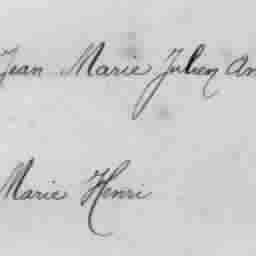 Jean Marie Julien An
Marie Henri